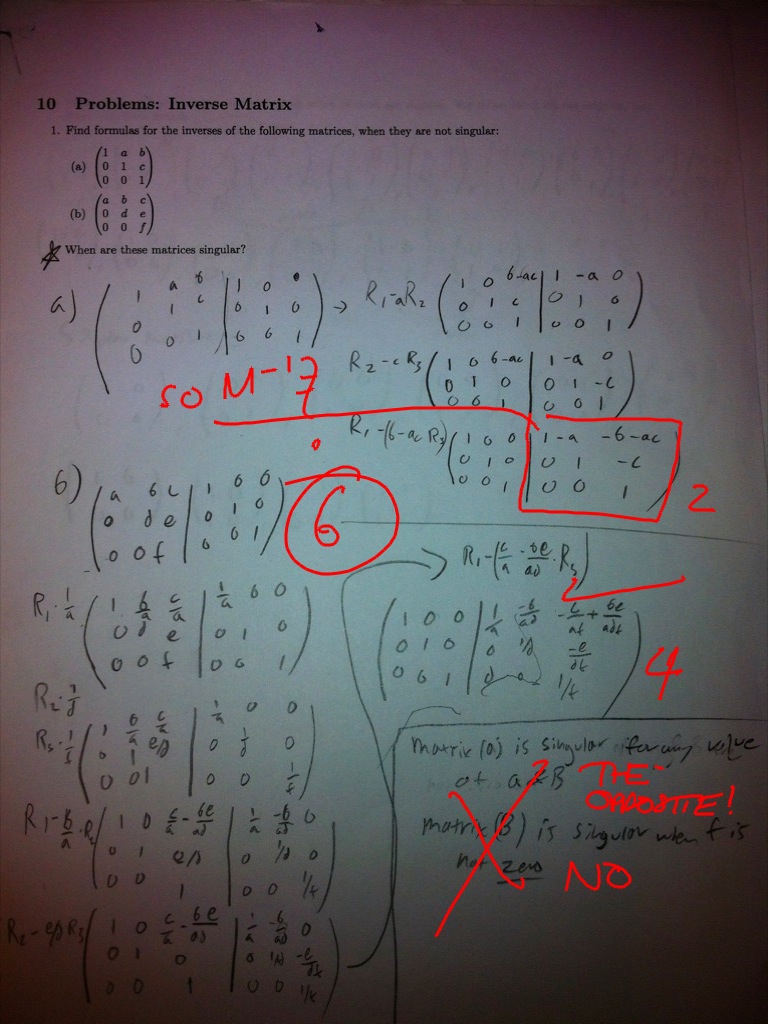 10 Problems: Inverse Matrix
1. Find formulas for the inverses of the following matrices, when they are not singular:
(a) (1 a b
0 1 c
0 0 1)
(b) (a b c
0 d e
0 0 f)
When are these matrices singular?
a) (1 a b | 1 0 0
0 1 c | 0 1 0
0 0 1 | 0 0 1) →
R₁-aR₂ (1 0 b-ac | 1 -a 0
0 1 c | 0 1 0
0 0 1 | 0 0 1)
R₂-cR₃ (1 0 b-ac | 1 -a 0
0 1 0 | 0 1 -c
0 0 1 | 0 0 1)
so M-1
R₁-(b-ac R₃) (1 0 0 | 1 -a -b-ac
0 1 0 | 0 1 -c
0 0 1 | 0 0 1)
2
b) (a b c | 1 0 0
0 d e | 0 1 0
0 0 f | 0 0 1)
6
R₁·1/a (1 b/a c/a | 1/a 0 0
0 d e | 0 1 0
0 0 f | 0 0 1)
R₂·1/d
R₃·1/f (1 b/a c/a | 1/a 0 0
0 1 e/d | 0 1/d 0
0 0 1 | 0 0 1/f)
R₁-b/a·R₂ (1 0 c/a-be/ad | 1/a -b/ad 0
0 1 e/d | 0 1/d 0
0 0 1 | 0 0 1/f)
R₂-e/d R₃ (1 0 c/a-be/ad | 1/a -b/ad 0
0 1 0 | 0 1/d -e/df
0 0 1 | 0 0 1/f)
R₁-(c/a-be/ad·R₃)
(1 0 0 | 1/a -b/ad -c/af+be/adf
0 1 0 | 0 1/d -e/df
0 0 1 | 0 0 1/f)
4
matrix (a) is singular for any value
of a & B
THE
OPPOSITE!
matrix (B) is singular when f is
not zero
NO